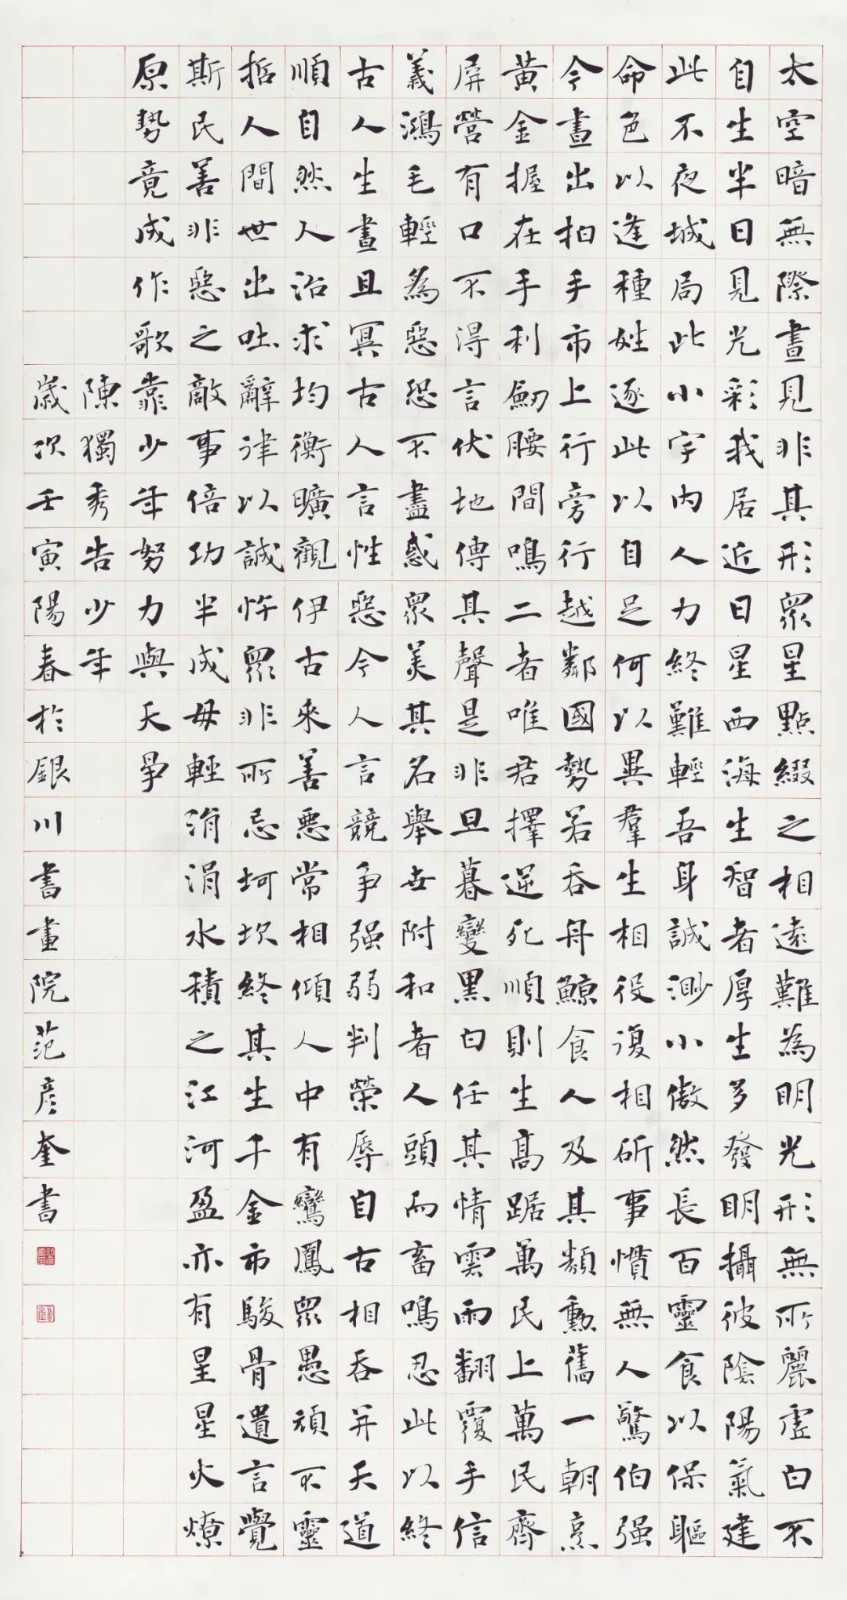 太空暗無際晝見非其形眾星點綴之相遠難為明光形無所麗虛白不
自生半日見光彩我居近日星西海生智者厚生多發明攝彼陰陽氣建
此不夜城局此小宇內人力終難輕吾身誠渺小傲然長百靈食以保軀
命色以逢種姓逐此以自足何以異羣生相役復相斫事慣無人驚伯强
今晝出拍手市上行旁行越鄰國勢若吞舟鯨食人及其類勳舊一朝烹
黃金握在手利劒腰間鳴二者唯君擇逆死順則生高踞萬民上萬民齊
屏營有口不得言伏地傳其聲是非旦暮變黑白任其情雲雨翻覆手信
義鴻毛輕為惡恐不盡惑眾美其名舉世附和者人頭而畜鳴忍此以終
古人生晝且冥古人言性惡今人言競爭强弱判榮辱自古相吞并天道
順自然人治求均衡曠觀伊古來善惡常相傾人中有鸞鳳眾愚頑不靈
哲人間世出吐辭律以誠忤眾非所忌坷坎終其生千金市駿骨遺言覺
斯民善非惡之敵事倍功半成毋輕涓涓水積之江河盈亦有星星火燎
原勢竟成作歌靠少年努力與天爭
陳獨秀告少年
歲次壬寅陽春於銀川書畫院范彥奎書